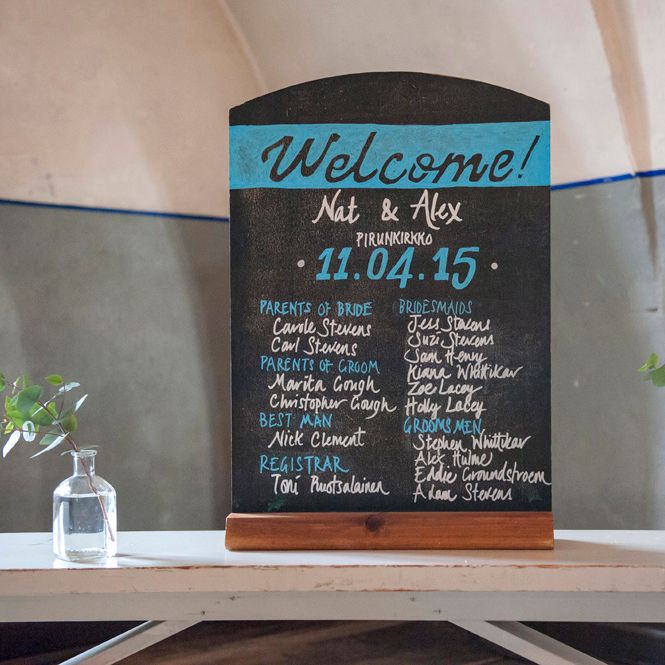 Welcome!
Nat & Alex
PIRUNKIRKKO
• 11.04.15 •
PARENTS OF BRIDE
Carole Stevens
Carl Stevens
PARENTS OF GROOM
Marita Gough
Christopher Gough
BEST MAN
Nick Clement
REGISTRAR
Toni Ruotsalainen
BRIDESMAIDS
Jess Stevens
Suzi Stevens
Sam Henry
Kiana Whittikar
Zoe Lacey
Holly Lacey
GROOMSMEN
Stephen Whittikar
Alex Hulme
Eddie Groundstroem
Adam Stevens